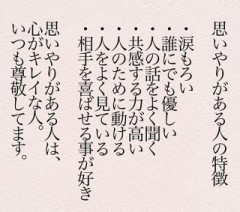 思いやりがある人の特徴
・涙もろい
・誰にでも優しい
・人の話をよく聞く
・共感する力が高い
・人のために動ける
・人をよく見ている
・相手を喜ばせる事が好き
思いやりがある人は、
心がキレイな人。
いつも尊敬してます。